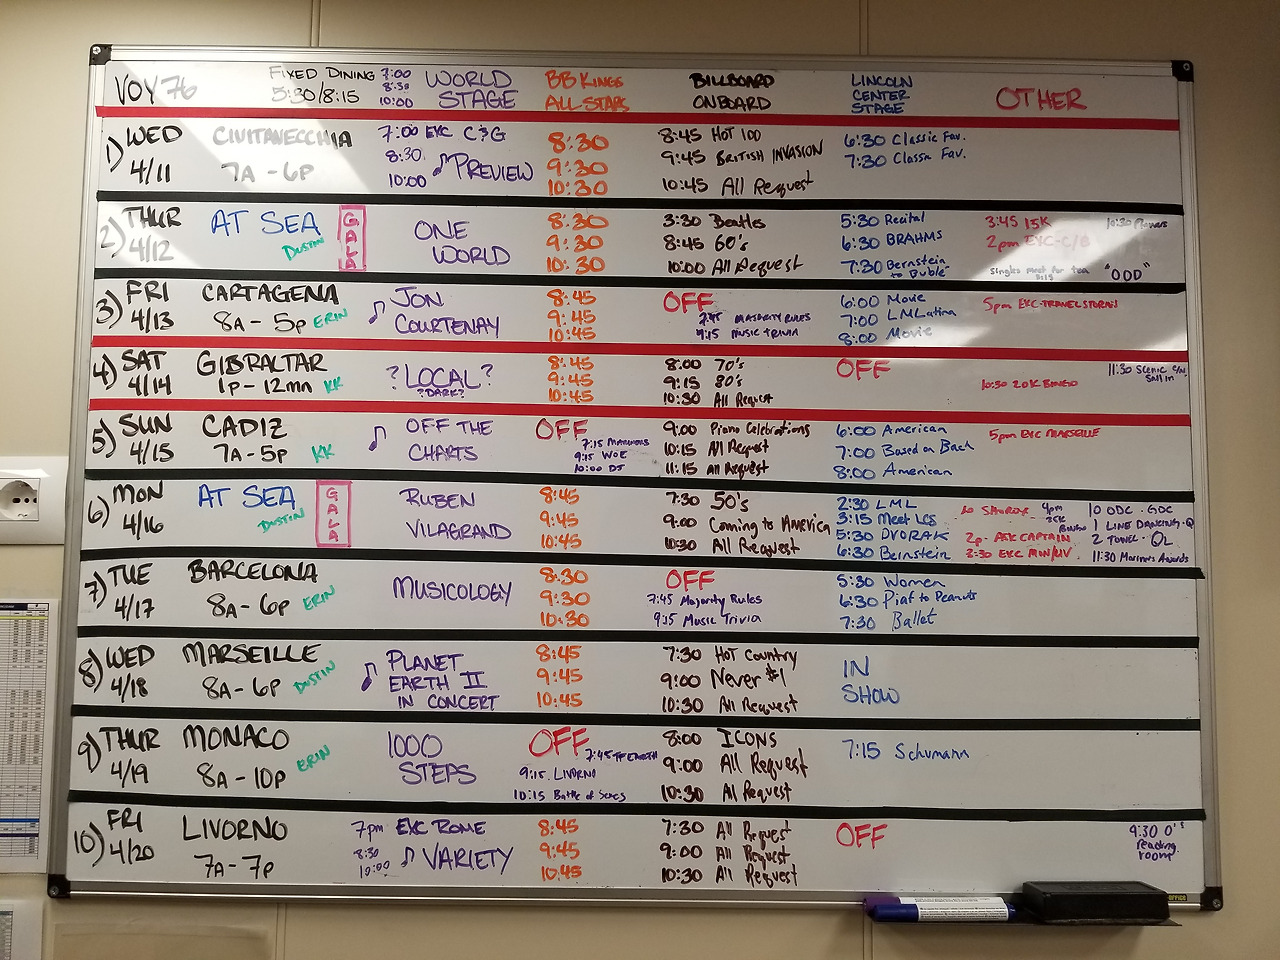 VOY 76
FIXED DINING
5:30/8:15
7:00
8:30
10:00
WORLD
STAGE
BB KINGS
ALL-STARS
BILLBOARD
ONBOARD
LINCOLN
CENTER
STAGE
OTHER
1) WED
4/11
CIVITAVECCHIA
7A - 6P
7:00 EXC C&G
8:30
10:00
♪ PREVIEW
8:30
9:30
10:30
8:45 HOT 100
9:45 BRITISH INVASION
10:45 All Request
6:30 Classic Fav.
7:30 Classic Fav.
2) THUR
4/12
AT SEA
DUSTIN
GALA
ONE
WORLD
8:30
9:30
10:30
3:30 Beatles
8:45 60's
10:00 All Request
5:30 Recital
6:30 BRAHMS
7:30 Bernstein
to Buble'
3:45 15K
2pm EXC-C/B
Singles meet for tea
10:30 Flowers
"OOD"
3) FRI
4/13
CARTAGENA
8A - 5P ERIN
♪ JON
COURTENAY
8:45
9:45
10:45
OFF
7:45 MAJORITY RULES
9:15 MUSIC TRIVIA
6:00 Movie
7:00 LMLatina
8:00 Movie
5pm EXC-TRAVEL STORIES
4) SAT
4/14
GIBRALTAR
1P - 12mn KK
? LOCAL ?
? DARK ?
8:45
9:45
10:45
8:00 70's
9:15 80's
10:30 All Request
OFF
10:30 20K BINGO
11:30 Scenic
Sail in
5) SUN
4/15
CADIZ
7A - 5P KK
♪ OFF THE
CHARTS
OFF
7:15 MARINERS
9:15 WOE
10:00 DJ
9:00 Piano Celebrations
10:15 All Request
11:15 All Request
6:00 American
7:00 Based on Bach
8:00 American
5pm EXC MARSEILLE
6) MON
4/16
AT SEA
DUSTIN
GALA
RUBEN
VILAGRAND
8:45
9:45
10:45
7:30 50's
9:00 Coming to America
10:30 All Request
2:30 LML
3:15 Meet LCS
5:30 DVORAK
6:30 Bernstein
4pm
Bingo
2p - ASK CAPTAIN
2:30 EXC MON/LIV
10 ODC · GDC
1 LINE DANCING · Q
2 TOWEL · QL
11:30 Mariners Awards
7) TUE
4/17
BARCELONA
8A - 6P ERIN
MUSICOLOGY
8:30
9:30
10:30
OFF
7:45 Majority Rules
9:15 Music Trivia
5:30 Women
6:30 Piaf to Peanuts
7:30 Ballet
8) WED
4/18
MARSEILLE
8A - 6P DUSTIN
♪ PLANET
EARTH II
IN CONCERT
8:45
9:45
10:45
7:30 HOT Country
9:00 Never #1
10:30 All Request
IN
SHOW
9) THUR
4/19
MONACO
8A - 10P ERIN
1000
STEPS
OFF
9:15 LIVORNO
10:15 Battle of Sexes
8:00 ICONS
9:00 All Request
10:30 All Request
7:15 Schumann
10) FRI
4/20
LIVORNO
7A - 7P
7pm EXC ROME
8:30
10:00
♪ VARIETY
8:45
9:45
10:45
7:30 All Request
9:00 All Request
10:30 All Request
OFF
9:30 O's
reading
room